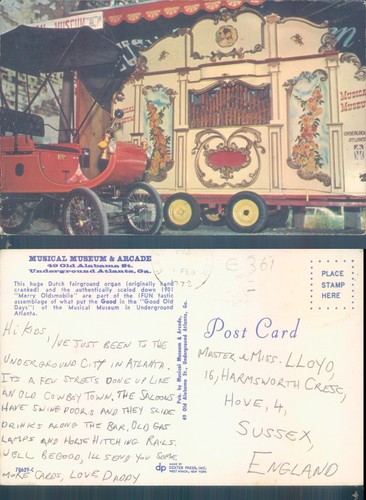 MUSEUM
MUSICAL
MUSEUM
MUSICAL MUSEUM & ARCADE
49 Old Alabama St.
Underground Atlanta, Ga.
This huge Dutch fairground organ (originally hand
cranked) and the authentically scaled down 1901
"Merry Oldsmobile" are part of the (FUN tastic
assemblage of what put the Good in the "Good Old
Days") of the Musical Museum in Underground
Atlanta.
Hi KIDS
I'VE JUST BEEN TO THE
UNDERGROUND CITY IN ATLANTA.
ITS A FEW STREETS DONE UP LIKE
AN OLD COWBOY TOWN, THE SALOONS
HAVE SWING DOORS AND THEY SLIDE
DRINKS ALONG THE BAR, OLD GAS
LAMPS AND HORSE HITCHING RAILS.
WELL BE GOOD, I'LL SEND YOU SOME
MORE CARDS, LOVE DADDY
70629-C
MADE BY
DEXTER PRESS, INC.
WEST NYACK, NEW YORK
dp
Pub. by Musical Museum & Arcade,
49 Old Alabama St., Underground Atlanta, Ga.
G 361
PLACE
STAMP
HERE
Post Card
MASTER & MISS. LLOYD,
16, HARMSWORTH CRESC,
HOVE, 4,
SUSSEX,
ENGLAND